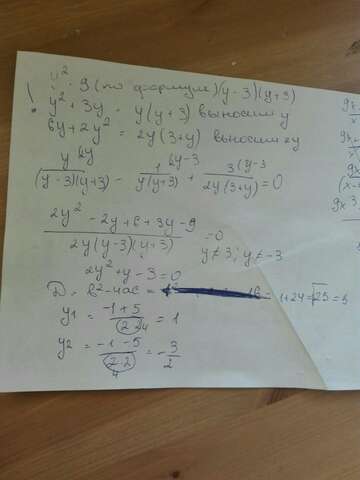 y² - 9 (по формуле) (y-3)(y+3)
! y² + 3y - y(y+3) выносим y
6y + 2y² = 2y(3+y) выносим 2y
y (2y / (y-3)(y+3) - 1 (2y-3 / y(y+3) + 3 (y-3 / 2y(3+y) = 0
2y² - 2y + 6 + 3y - 9 / 2y(y-3)(y+3) = 0
y ≠ 3; y ≠ -3
2y² + y - 3 = 0
D = b² - 4ac = 1 + 24 = √25 = 5
y1 = -1 + 5 / 2·2 4 = 1
y2 = -1 - 5 / 2·2 4 = - 3/2
9x
9x
9x
(x-
9x3